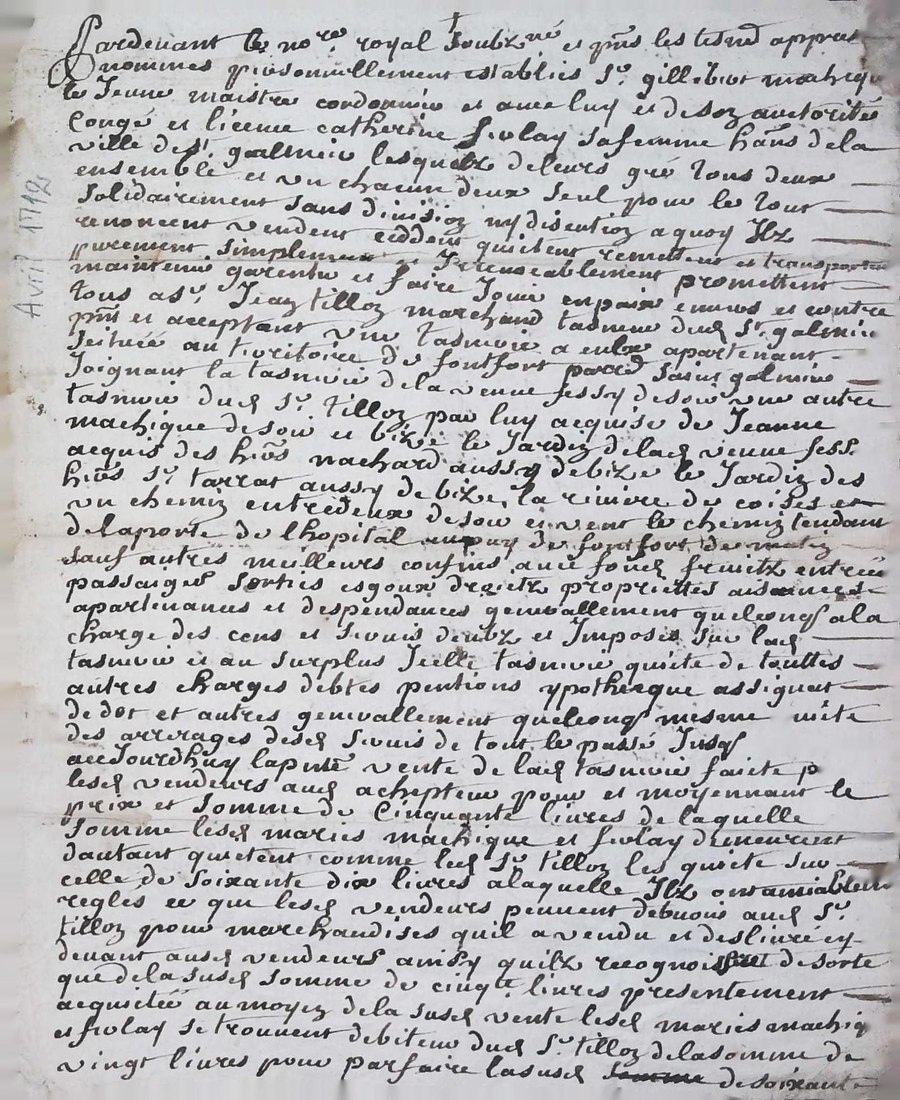 Pardevant le no.re royal soubz.né et p.nt les tesm.d appres
nommés personnellement establis S.r gillebert machique
le Jeune maistre cordonnier et avec luy et de son auctorité
Congé et licence catherine ferlay sa femme han.s de la
ville de S.t galmier lesquelz de leurs gré tous deux
ensemble et un chacun deux seul pour le tout
solidairement sans division ny disention a quoy Ilz
renoncent vendent ceddent quictent remettent et transportent
purement simplement et Irrevocablement promettent
maintenir garentir et faire Jouir en paix envers et contre
tous a S.r Jean tilloz marchand tasneur dud S.t galmier
p.nt et acceptant une tasnerie a eulx apartenant
scituée au territoire de fontfort par.d saint galmier
Joignant la tasnerie de la veuve fessy de soir une autre
tasnerie dud S.r tilloz par luy acquise de Jeanne
machique de soir et bize le Jardin de lad veuve fess.
acquis des hers nachard aussy de bize le Jardin des
hers S.r tarrat aussy de bize la riviere de coises et
un chemin entredeux de soir et vent le chemin tendant
de la porte de lhopital au puy de fontfort de matin
sauf autres meilleurs confins avec fond fruitz entrée
passaiges sorties esgoux droictz proprietés aisances
apartenances et despendances generallement quelconqs a la
charge des cens et servis deubz et Imposés sur lad
tasnerie et au surplus Icelle tasnerie quicte de touttes
autres charges debtes pentions ypothecque assignat
de dot et autres generallement quelconqs mesme quicte
des arrerages desd servis de tout le passé Jusqs
aujourdhuy la p.nte vente de lad tasnerie faicte p
lesd vendeurs aud achepteur pour et moyennant le
prix et somme de Cinquante livres de laquelle
somme lesd mariés machique et ferlay demeurent
dautant quictent comme led S.r tilloz les quicte sur
celle de soixante dix livres a laquelle Ilz ont amiablem
reglés ce que lesd vendeurs peuvent debvoir aud S.r
tilloz pour marchandises quil a vendu et deslivré cy-
devant ausd vendeurs ainsy quilz recognoissent de sorte
que de la susd somme de cinqte livres presentement
acquitée au moyen de la susd vente lesd mariés machiq
et ferlay se trouvent debiteur dud S.r tilloz de la somme de
vingt livres pour parfaire la susd somme de soixante
Avril 1712